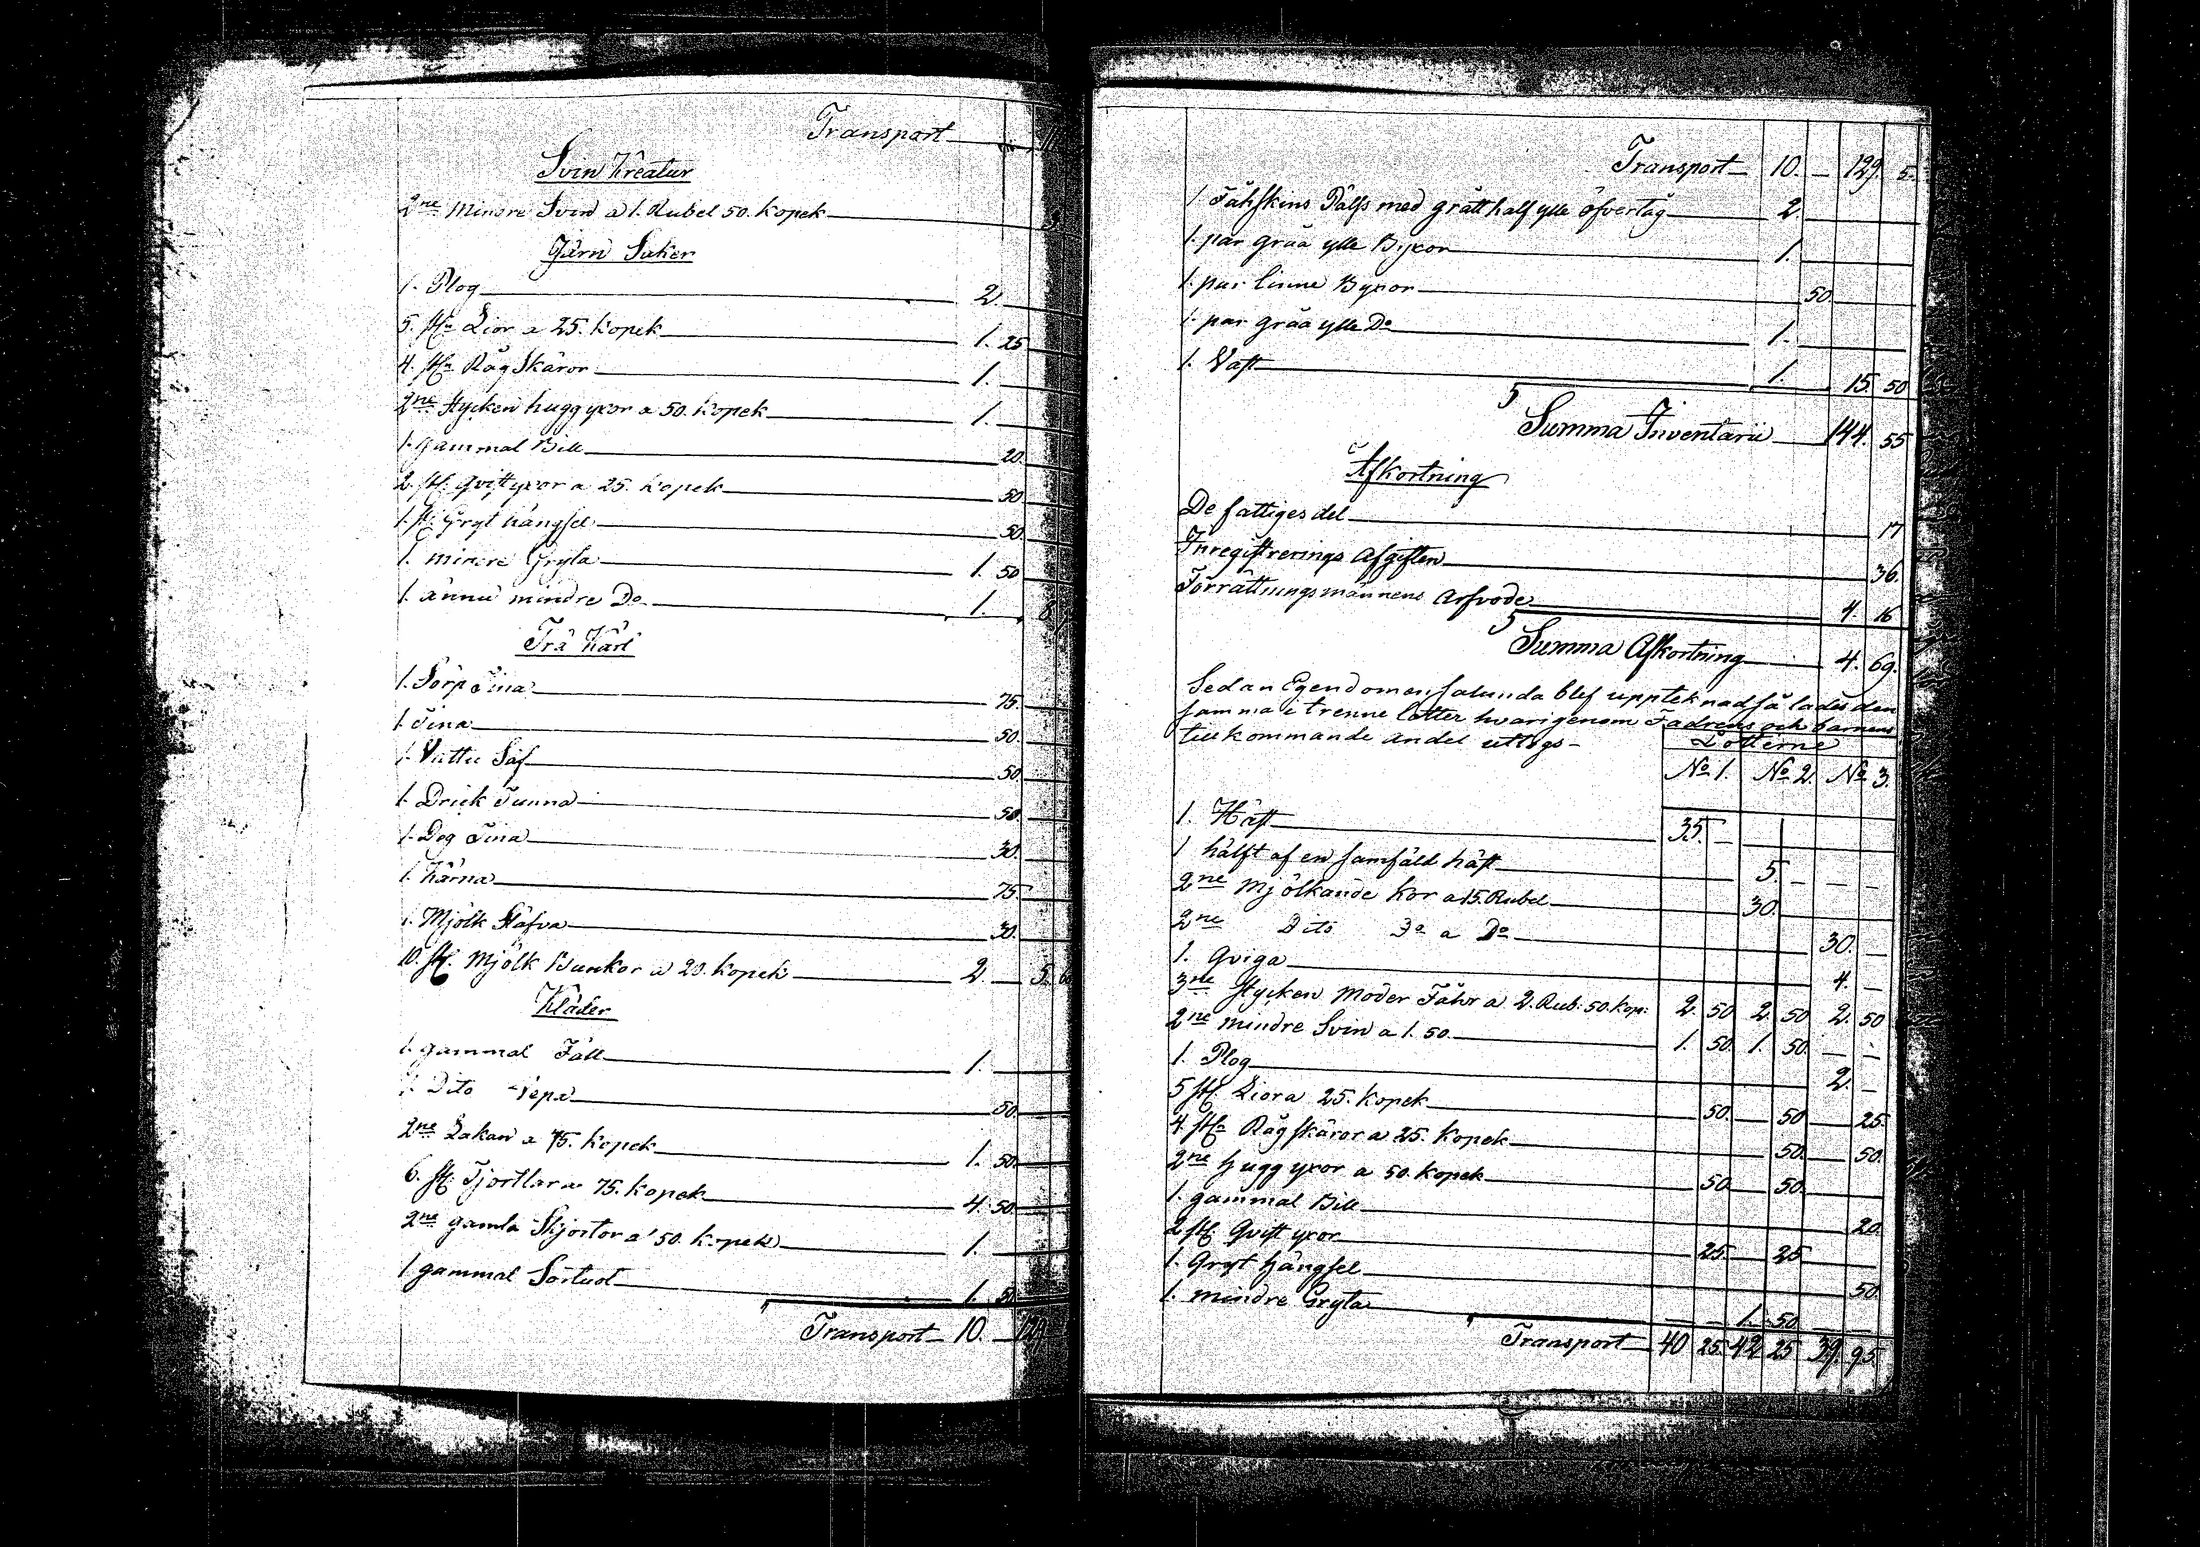 Transport
Svin Kreatur
2ne Mindre Svin a 1. Rubel 50. Kopek 3
Jern Saker
1. Plog 2.
5. st. Lior a 25. Kopek 1. 25
4. st. Råg Skäror 1.
2ne Stycken huggyxor a 50. Kopek 1.
1. gammal Bill 20.
2. st. Qvistyxor a 25. Kopek 50
1. st. Gryt hängsel 50.
1. mindre Gryta 1. 50
1. ännu mindre Do 1. 8
Trä Kärl
1. Sörp Tina 75.
1. Tina 50.
1. Vattu Så 50
1. Drick Tunna 50
1. Deg Tina 30.
1. Kärna 75
1. Mjölk Stäfva 30.
10. st. Mjölk Bunkor a 20. Kopek 2. 5. 60
Kläder
1. gammal Fäll 1.
1. Dito Vepa 50.
2ne Lakan a 75. Kopek 1. 50.
6. st. Tjortlar a 75. Kopek 4. 50.
2ne gamla Skjortor a 50. Kopek 1.
1. gammal Sortuot 1. 50
Transport 10. 129
Transport 10. — 129. 5.
1. Fåhskins Päls med grått half ylle öfvertåg 2
1. par gråa ylle Byxor 1.
1. par linne Byxor 50
1. par gråa ylle Do 1.
1. Väst 1. 15. 50
Summa Inventarii 144. 55
Afkortning
De fattiges del 17
Inregistrerings Afgiften 36.
Förrättningsmännens Arfvode 4. 16
Summa Afkortning 4. 69.
Sedan Egendomen salunda blef upptecknad så lades den
samma i trenne lotter hvarigenom Fadrens och barnens
tillkommande andel uttogs-
Lotterne
No 1. No 2. No 3.
1. Häst 35. —
1 hälft af en samfäld häst 5. — — —
2ne Mjölkande Kor a 15. Rubel 30.
2ne Dito Do a Do 30. —
1. Qviga 4. —
3ne Stycken Moder Fåhr a 2. Rub: 50. Kop: 2. 50 2. 50 2. 50
2ne mindre Svin a 1. 50. 1. 50. 1. 50. — -
1. Plog 2. —
5 st. Lior a 25. Kopek 50. 50 25.
4 st. Råg skäror a 25. Kopek 50. 50.
2ne huggyxor a 50. Kopek 50. 50.
1. gammal Bill 20.
2 st. Qvist yxor 25. 25
1. Gryt hängsel 50.
1. mindre Gryta 1. 50
Transport 40 25. 42 25 39. 95.